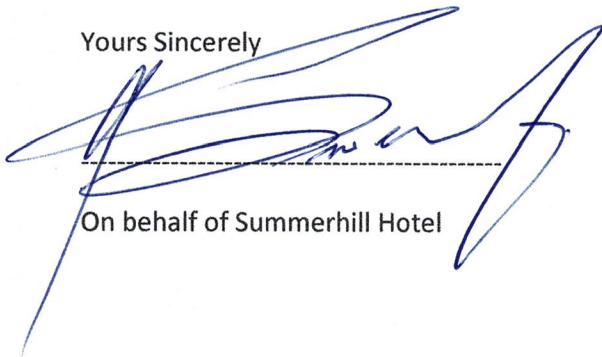 Yours Sincerely
On behalf of Summerhill Hotel